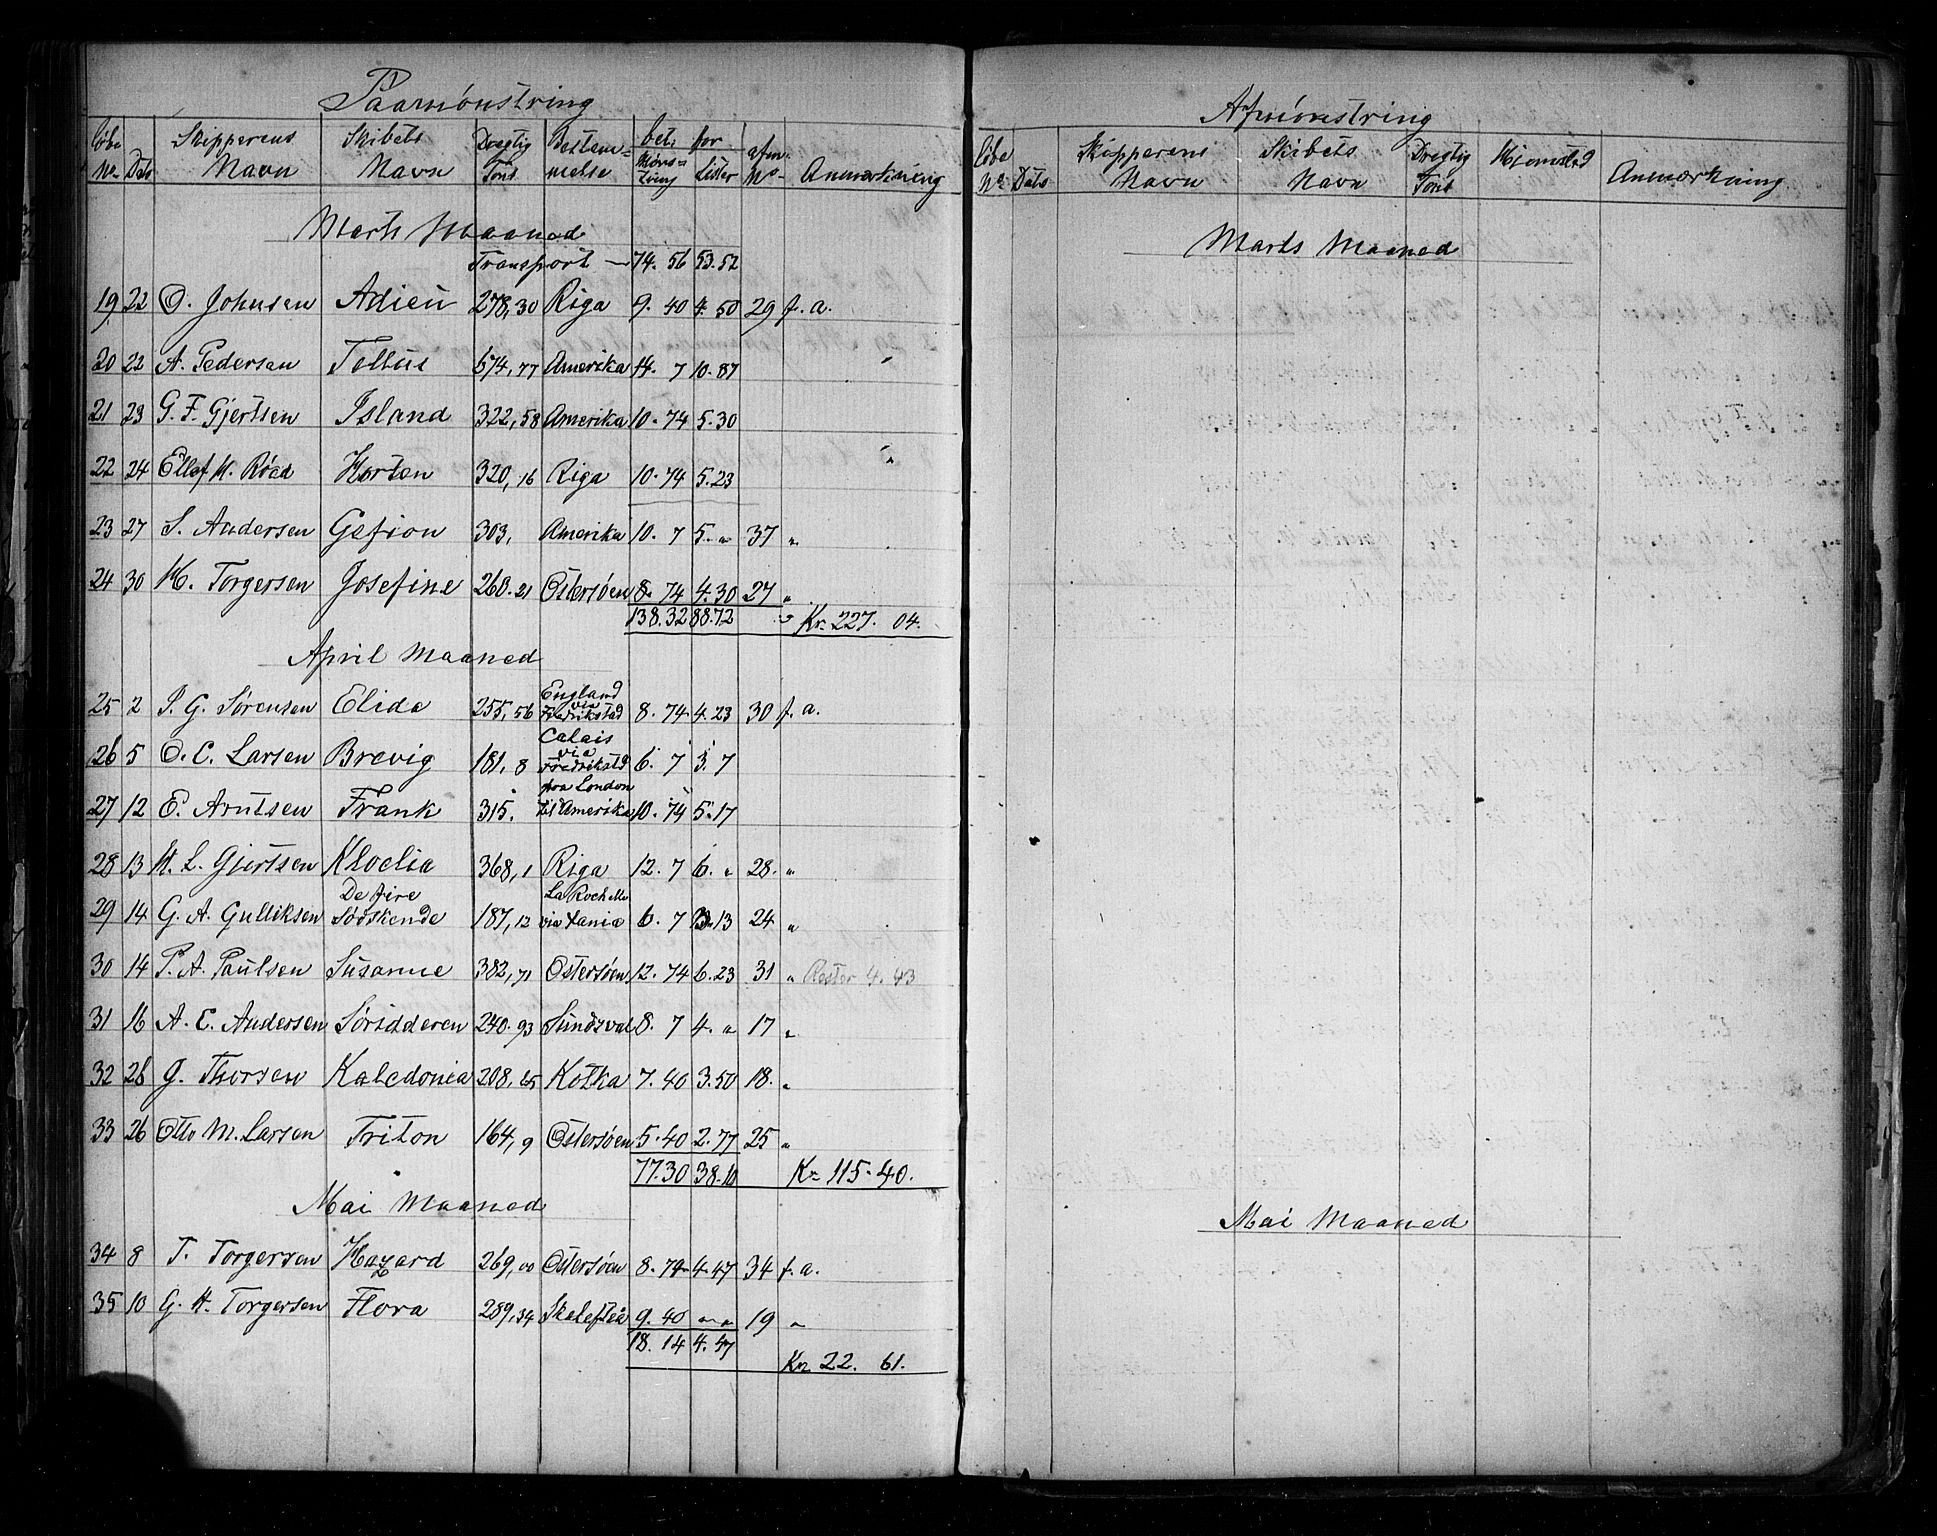 Paamönstring
Löbe No Dato Skipperens Navn Skibets Navn Drægtig Tons Bestemmelse bet. for Mönstring Lister afm. No Anmærkning
Marts Maaned
Transport — 74. 56 53. 52
19 22 O. Johnsen Adieu 278,30 Riga 9. 40 4. 50 29 f. a.
20 22 A. Pedersen Tellus 674,77 Amerika 14. 7 10. 87
21 23 G. F. Gjertsen Island 322,58 Amerika 10. 74 5. 30
22 24 Ellef H. Röed Horten 320,16 Riga 10. 74 5. 23
23 27 S. Andersen Gefion 303, Amerika 10. 7 5. " 37 "
24 30 H. Torgersen Josefine 260. 21 Östersöen 8. 74 4. 30 27 "
138. 32 88. 72 Kr. 227. 04.
April Maaned
25 2 S. G. Sörensen Elida 255,56 England via Fredrikstad 8. 74 4. 23 30 f. a.
26 5 O. C. Larsen Brevig 181, 8 Calais via Fredrikstd 6. 7 3. 7
27 12 E. Arntsen Frank 315. fra London til Amerika 10. 74 5. 17
28 13 H. L. Gjertsen Kloelia 368,1 Riga 12. 7 6. " 28. "
29 14 G. A. Gulliksen De fire Södskende 187,12 La Rochelle via 6. 7 3. 13 24 "
30 14 P. A. Paulsen Susanne 382,71 Östersöen 12. 74 6. 23 31 " Rester 4. 43
31 16 A. C. Andersen Söridderen 240. 93 Sundsval 8. 7 4. " 17 "
32 26 G. Thorsen Kaledonia 208,65 Kotka 7. 40 3. 50 18. "
33 26 Otto M. Larsen Triton 164,9 Östersöen 5. 40 2. 77 25 "
77. 30 38. 10 Kr 115. 40.
Mai Maaned
34 8 T. Torgersen Hazard 269,00 Östersöen 8. 74 4. 47 34 f. a.
35 10 G. H. Torgersen Flora 289,34 Skelefteå 9. 40 " " 19 "
18. 14 4. 47
Kr 22. 61.
Afmönstring
Löbe No Dato Skipperens Navn Skibets Navn Drægtig Tons Hjemsted Anmærkning
Marts Maaned
Mai Maaned